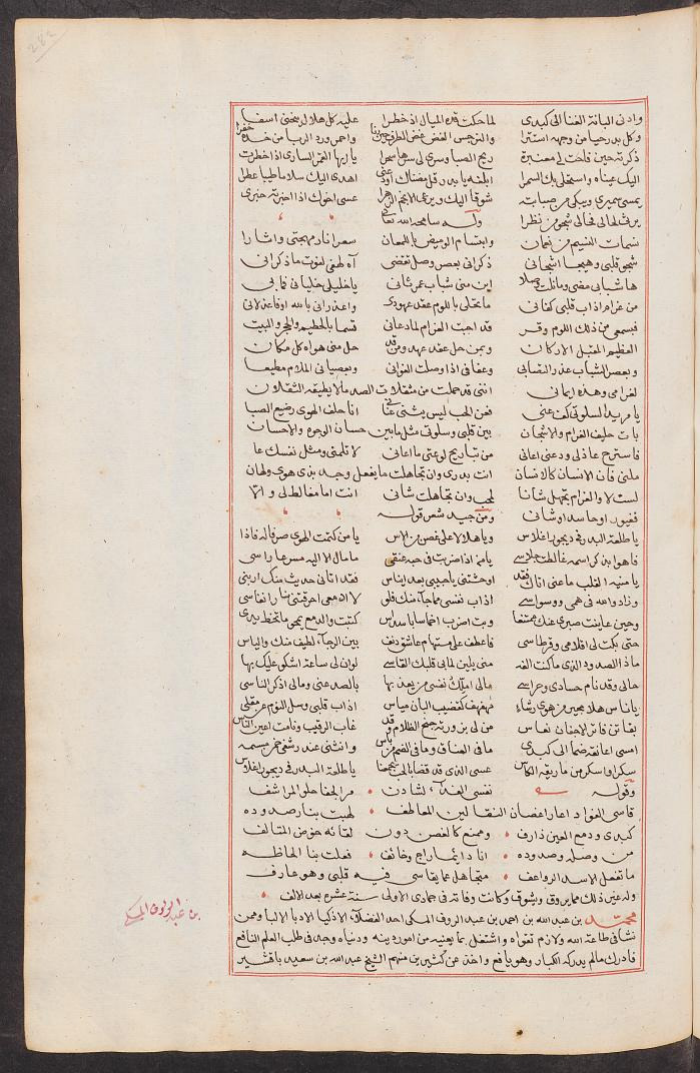 282
وادنى البانة الغنا الى كبدى لما حكت قده الميال اذ خطرا عليه كل هلال له يخفى اسفا
وكل بدر حيا من وجهه استترا والنرجس الغض غض الطرف واحمر ورد الربا من خده خفرا
ذكرته حين فاحت لى معنبرة ريح الصبا وسرى لى سرها سحرا يا ايها القمر السارى اذا خطرت
اليك عيناه واستحلى بك السمرا ابلغه يا بدر قل مضناك اهدى اليك سلاما طيبا عطرا
يمسى سميرى ويبكى من صبابته شوقا اليك ويرعى الانجم الزهرا عسى اخوك اذا اخبرته خبرى
يرثى لحالى فحالى شجو من نظرا وله سامحه الله تعالى
نسمات النسيم من نعمان وابتسام الوميض باللمعان سعرا نار مهجتى واشارا
شجو قلبى وهيجا اشجانى ذكرانى بعصر وصل تقضى آه لهفى لفوت ما ذكرانى
ها شبابى مضى وما نلت وصلا اين منى شباب عمر ثانى يا خليلى خليانى فما بى
من غرام اذاب قلبى كفانى ما تحلى باللوم عقد عهودى واعذرانى بالله او فاعذلانى
فبسمعى من ذلك اللوم وقر قد اجبت الغرام لما دعانى قسما بالحطيم والحجر والبيت
العظيم المقبل الاركان وبمن حل عقد عهد ومن قد حل منى هواه كل مكان
وبعصر الشباب عذر التصابى وعفافى اذا وصلت الغوانى وبعصيانى الملام مطيعا
لغرامى وهذه ايمانى اننى قد حملت من مثقلات الصد ما لا يطيقه الثقلان
يا مريد السلو عنى كف عنى فعن الحب ليس يثنى عنانى انا حلف الهوى رضيع الصبا
بات حليف الغرام والاشجان بين قلبى وسلوتى مثل ما بين حسان الوجوه والاحسان
فاسترح عاذلى ودعنى اعانى من تباريح لوعتى ما اعانى لا تلمنى ومثل نفسك عا
ملنى فان الانسان كالانسان انت تدرى وان تجاهلت ما يفعل وجد بذى هوى ولهان
لست لا والغرام تجهل شانا لمحب وان تجاهلت شانى انت اما مغالط لى و اما
فغيور او حاسد او شانى ومن جيد شعره قوله
يا طلعة البدر فى ديجور اغلاس ويا هلالا على غصن من الاس يا من كتمت الهوى صرفا له فاذا
فاهوا بذكر اسمه غالطت جلاسى يا من اذا ضربت فى حبه عنقى ما مال الا اليه مسرعا راسى
يا منية القلب ما عنى اتاك فقد اوحشتنى يا حبيبى بعد ايناس فقد اتانى حديث منك اربنى
وزاد واعه فى همى ووسواسى اذاب نفسى مما جا منك فلو لا ادمعى احرقتنى نار انفاسى
وحين عاينت صبرى عنك ممتنعا وبت اضرب اخماسا باسداس كتبت والدمع يمحو ما تخط يدى
حتى بكت لى اقلامى وقرطاسى فاعطف على مستهام عاشق دنف بين الرجاء لطيف منك والياس
ماذا الصدود الذى ما كنت الفه متى يلين لما بى قلبك القاسى لو ان لى ساعة اشكو عليك بها
حالى وقد نام حسادى وحراسى مالى املك نفسى من يعذبها بالصد عنى ومالى اذكر الناسى
يا ناس هل لا مجير من هوى رشاء مهفهف كقضيب البان مياس اذاب قلبى وسل النوم عن مقلى
بفاتن فاتر الاجفان نعاس من لى بزورته جنح الظلام وقد غاب الرقيب ونامت اعين الناس
امسى اعانقه ضما الى كبدى ما فى العناق وما فى الضم من باس وانثنى عند رشفى خمر مبسمه
سكرا واسكر من ما ريقه الكاس عسى الذى قد قضا بالحب يجمعنا يا طلعة البدر فى ديجور اغلاس
وقوله نفسى الفداء لشادن مر الجفا حلو المراشف
قاسى الفواد اعار اغصان النقا لين المعاطف لهبت بنار صدوده
كبدى ودمع العين ذارف وممنع كالغصن دون لقائه خوض المتالف
من وصله وصدوده انا دائما راج وخائف فعلت بنا الحاظه
ما تفعل الاسد الرواعف متجاهل عما يقاسى فيه قلبى وهو عارف
وله غير ذلك مما يروق ويشوق وكانت وفاته فى جمادى الاولى سنة عشره بعد الالف
محمد بن عبد الله بن احمد بن عبد الروف المكى احد الفضلاء الاذكيا الادبا الالبا وممن
نشا فى طاعة الله ولازم تقواه واشتغل بما يعنيه من امور دينه ودنياه وجد فى طلب العلم النافع
فادرك مالم يدركه الكبار وهو يافع واخذ عن كثيرين منهم الشيخ عبد الله بن سعيد باقشير
بن عبد الروف المكى